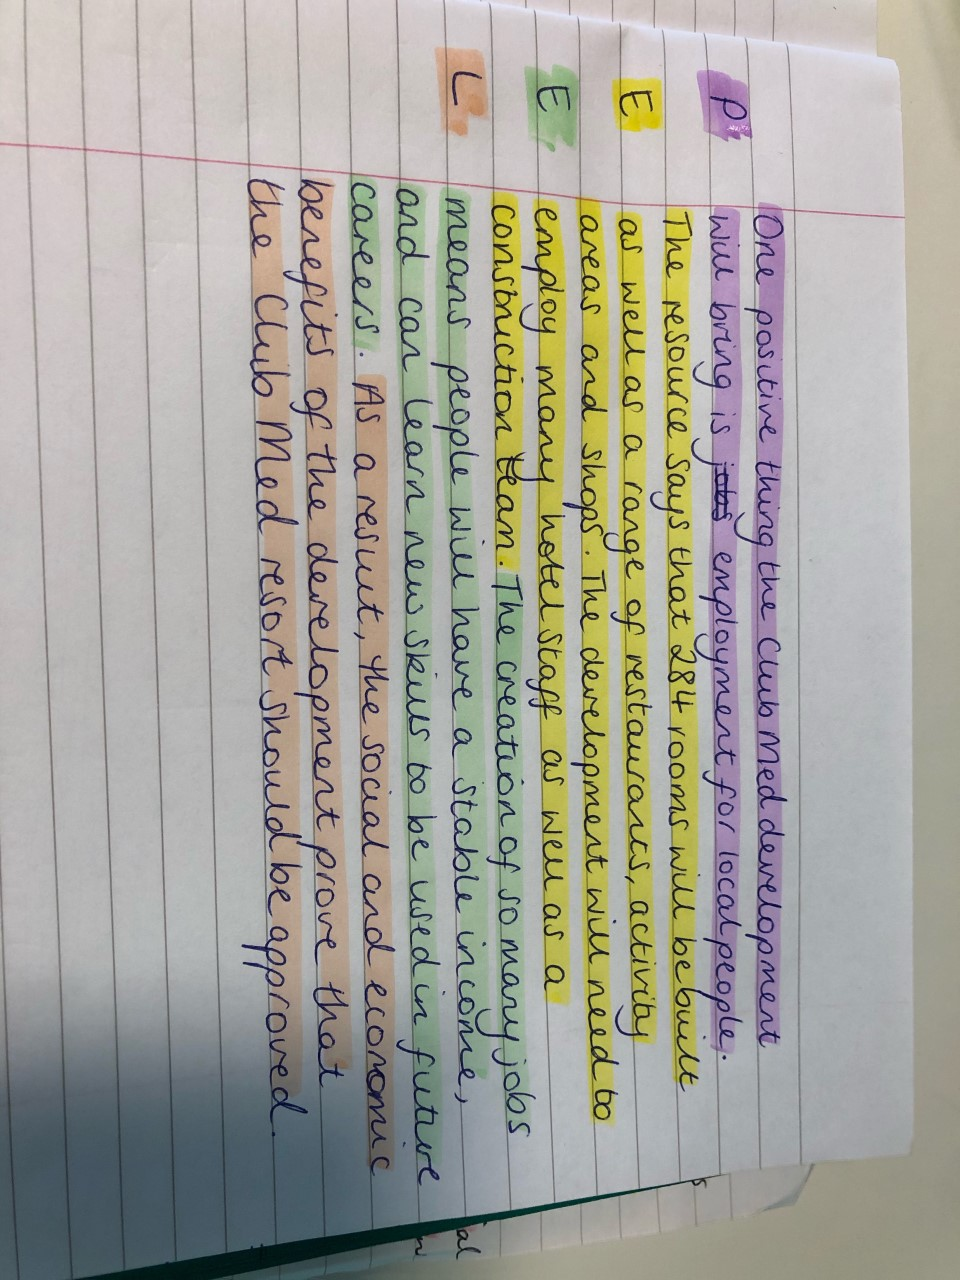 P
E
E
L
One positive thing the Club Med development
will bring is jobs employment for local people.
The resource says that 284 rooms will be built
as well as a range of restaurants, activity
areas and shops. The development will need to
employ many hotel staff as well as a
construction team. The creation of so many jobs
means people will have a stable income,
and can learn new skills to be used in future
careers. As a result, the social and economic
benefits of the development prove that
the Club Med resort should be approved.
al